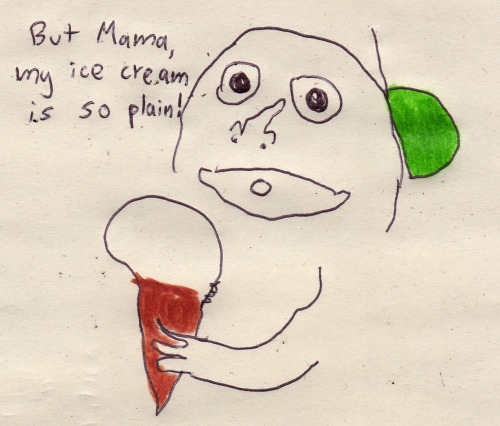 But Mama,
my ice cream
is so plain!